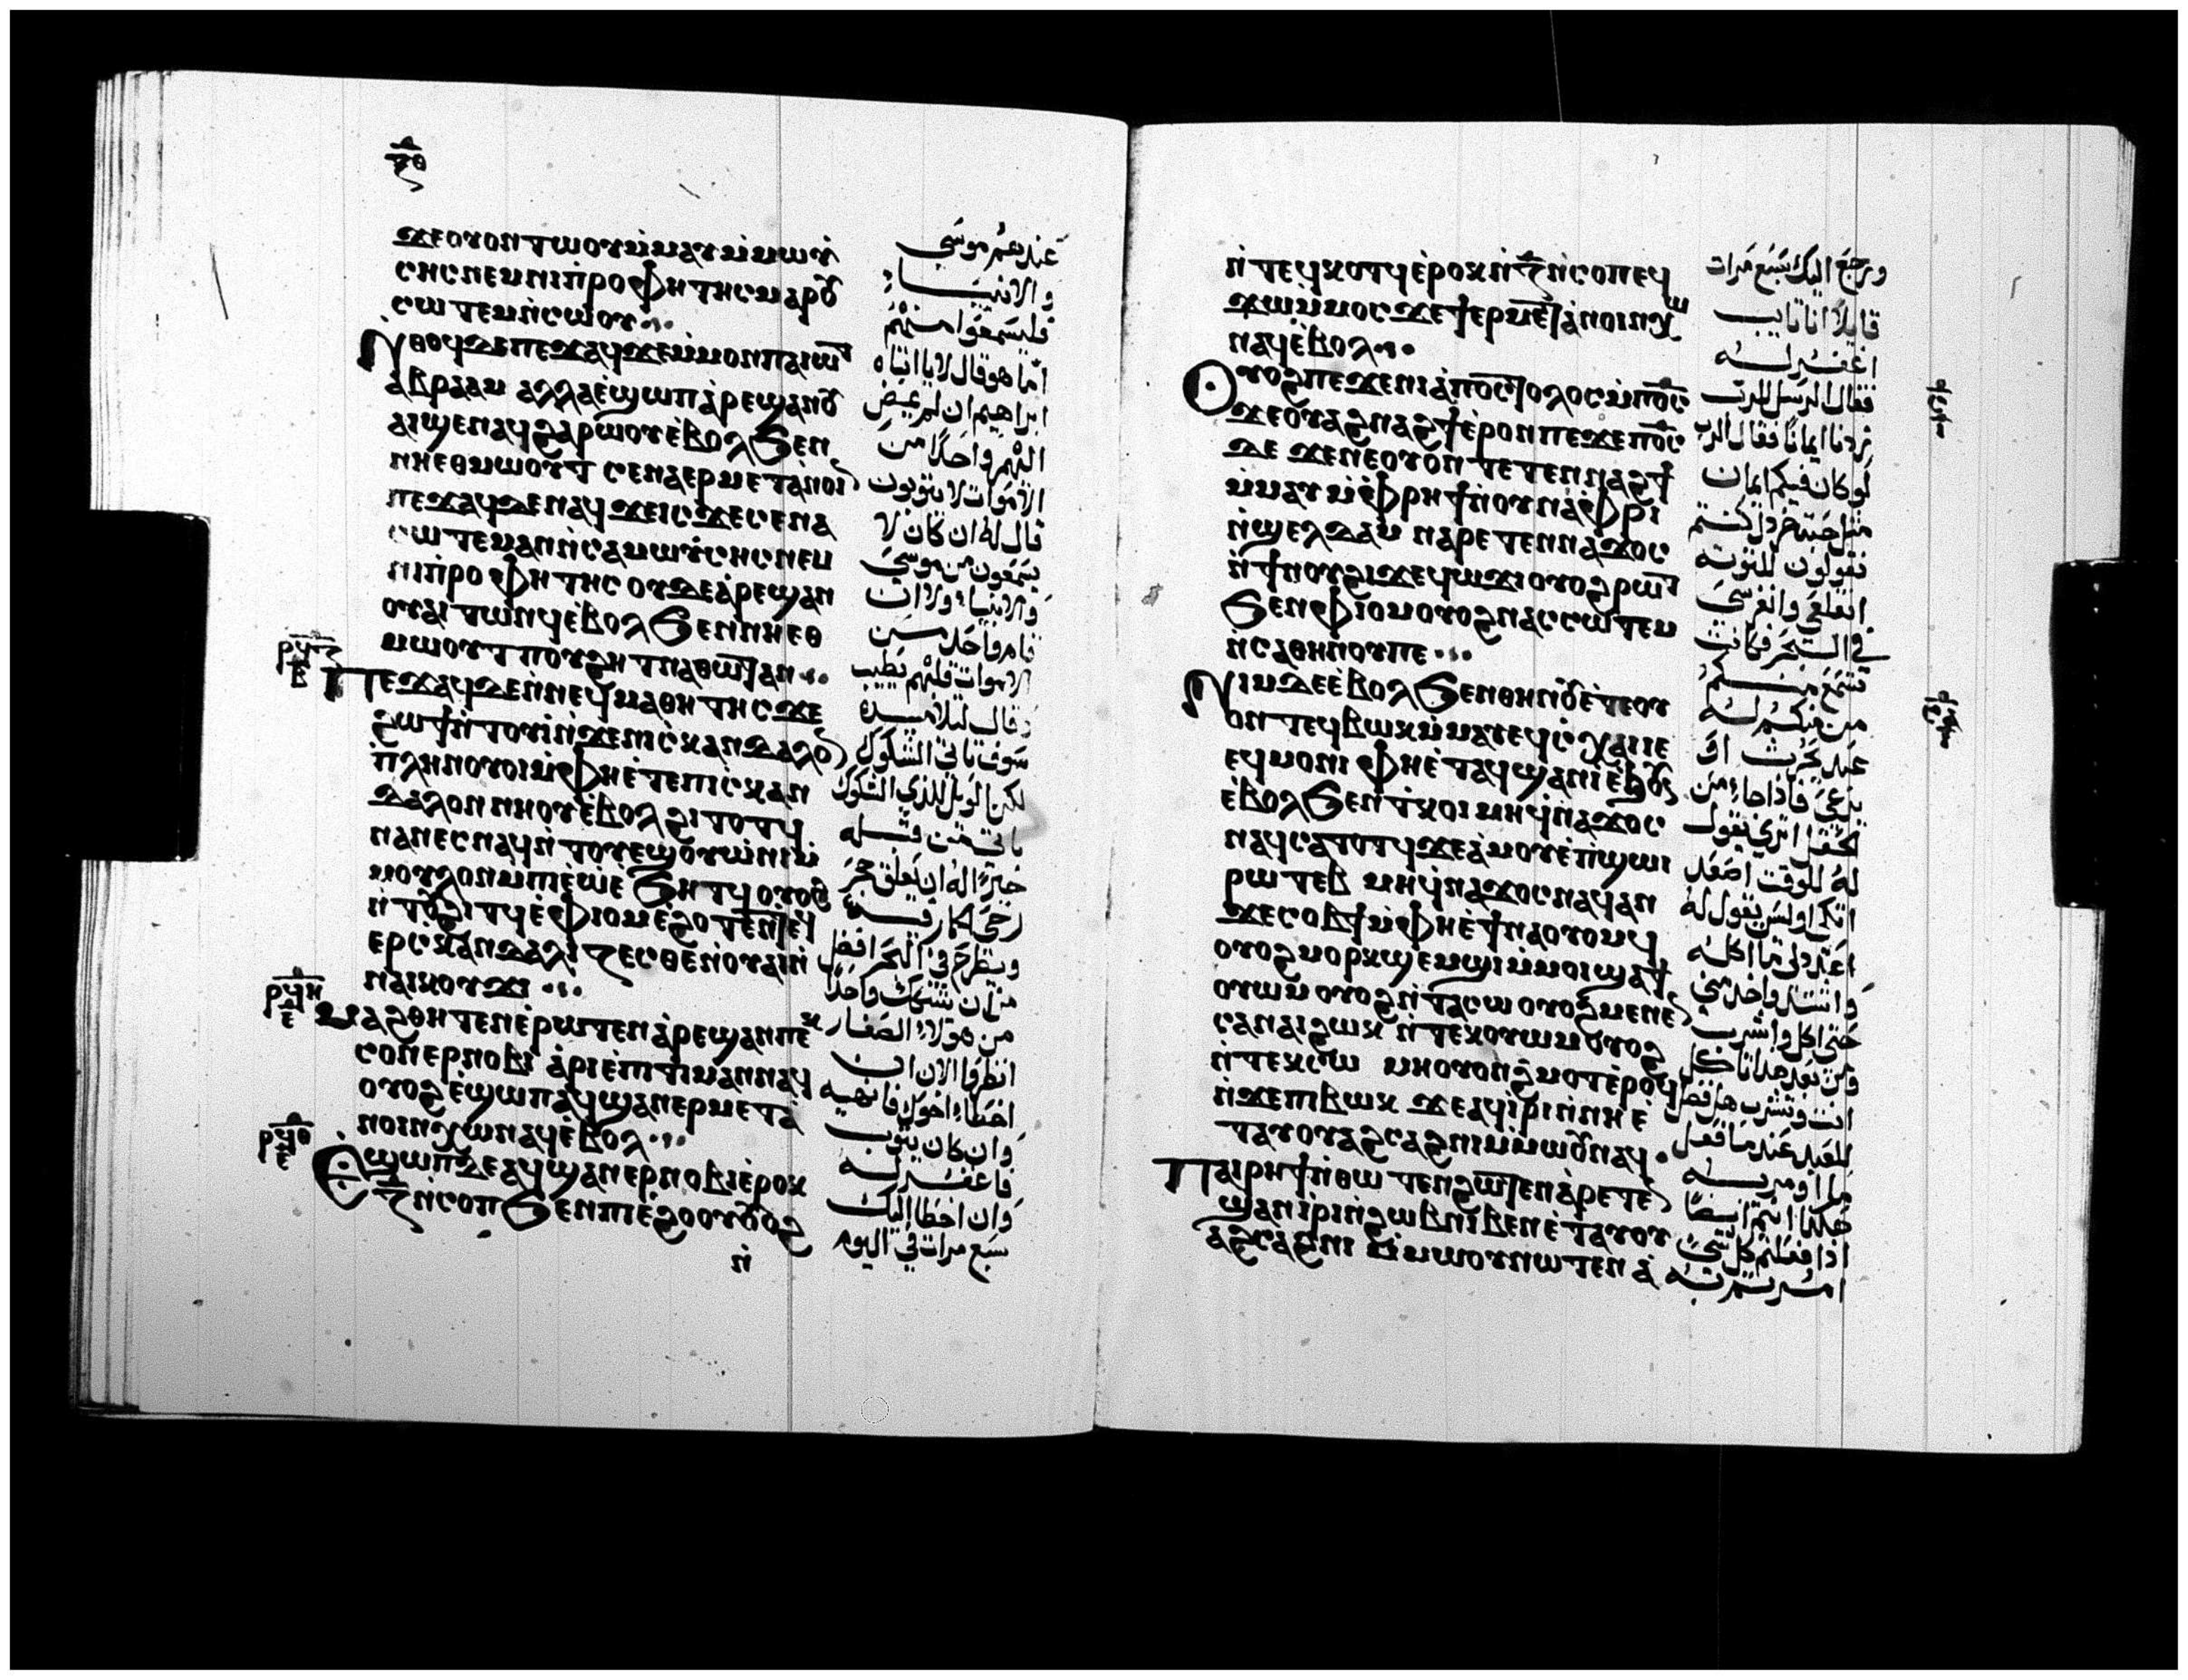 ϥⲑ
ϫⲉⲟⲩⲟⲛⲧⲱⲟⲩⲙ̇ⲙⲁⲩⲙ̇ⲙⲱⲩ̇
ⲥⲏⲥⲛⲉⲙⲛⲓⲡ̇ⲣⲟⲫⲏⲧⲏⲥⲙⲁⲣⲟⲩ
ⲥⲱⲧⲉⲙⲛ̇ⲥⲱⲟⲩ
ⲛⲑⲟϥⲇⲉⲡⲉϫⲁϥϫⲉⲙ̇ⲙⲟⲛⲡⲁⲓⲱⲧ
ⲁ̇ⲃⲣⲁⲁⲙ ⲁⲗⲗⲁⲉ̇ϣⲱⲡⲁ̇ⲣⲉϣⲁⲛⲟⲩ
ⲁⲓϣⲉⲛⲁϥϩⲁⲣⲱⲟⲩⲉ̇ⲃⲟⲗϧⲉⲛ
ⲛⲏⲉⲑⲙⲱⲟⲩⲧ ⲥⲉⲛⲁⲉⲣⲙⲉⲧⲁⲛⲟⲓⲛ
ⲡⲉϫⲁϥⲇⲉⲛⲁϥϫⲉⲓⲥϫⲉⲥⲉⲛⲁ
ⲥⲱⲧⲉⲙⲁⲛⲛ̇ⲥⲁⲙⲱⲩ̇ⲥⲏⲥⲛⲉⲙ
ⲛⲓⲡ̇ⲣⲟⲫⲏⲧⲏⲥ ⲟⲩⲇⲉⲁ̇ⲣⲉϣⲁⲛ
ⲟⲩⲁⲓⲧⲱⲛϥⲉ̇ⲃⲟⲗϧⲉⲛⲛⲏⲉⲑ
ⲙⲱⲟⲩⲧⲡⲟⲩϩⲏⲧⲛⲁⲑⲱⲧⲁⲛ
ⲡⲉϫⲁϥⲇⲉⲛ̇ⲛⲉϥⲙⲁⲑⲏⲧⲏⲥϫⲉ
ϩⲱϯⲛ̇ⲧⲟⲩⲓ̇ⲛ̇ϫⲉⲛⲓⲥ̇ⲕⲁⲛⲇⲁⲗⲟⲛ
ⲡ̇ⲗⲏⲛⲟⲩⲟⲓⲙ̇ⲫⲏⲉ̇ⲧⲉⲛⲓⲥ̇ⲕⲁⲛ
ⲇⲁⲗⲟⲛⲛⲏⲟⲩⲉ̇ⲃⲟⲗϩⲓⲧⲟⲧϥ
ⲛⲁⲛⲉⲥⲛⲁϥⲛ̇ⲧⲟⲩⲉϣⲟⲩⲱ̇ⲛⲓⲙ̇
ⲙⲟⲩⲗⲟⲛⲙ̇ⲡⲓⲉ̇ⲱⲉ̇ϧⲏⲧϥⲟⲩⲟϩ
ⲛ̇ⲧⲟⲩϩⲓⲧϥⲉ̇ⲫⲓⲟⲙⲉ̇ϩⲟⲧⲉⲛⲧⲉϥ
ⲉⲣⲥ̇ⲕⲁⲛⲇⲁⲗⲓⲍⲉⲥⲑⲉⲛ̇ⲟⲩⲁⲓⲛ̇
ⲛⲁⲓⲕⲟⲩϫⲓ
ⲙⲁϩⲑⲏⲧⲉⲛⲉ̇ⲣⲱⲧⲉⲛⲁ̇ⲣⲉϣⲁⲛⲡⲉⲕ
ⲥⲟⲛⲉⲣⲛⲟⲃⲓ ⲁ̇ⲣⲓⲉ̇ⲡⲓⲧⲓⲙⲁⲛⲛⲁϥ
ⲟⲩⲟϩⲉ̇ϣⲱⲡⲁϥϣⲁⲛⲉⲣⲙⲉⲧⲁ̇
ⲛⲟⲓⲛⲭⲱⲛⲁϥⲉ̇ⲃⲟⲗ
ⲉϣⲱⲡⲇⲉⲁϥϣⲁⲛⲉⲣⲛⲟⲃⲓⲉ̇ⲣⲟⲕ
ⲍ̅ⲛ̇ⲥⲟⲡϧⲉⲛⲡⲓⲉ̇ϩⲟⲟⲩⲟⲩⲟϩ
ⲛ̇
عندهم موسى
والانبياء
فليسمعوا منهم
اما هو قال لا يا ابتاه
ابراهيم ان لم يمض
اليهم واحدا من
الاموات لا يتوبون
قال له ان كان لا
يسمعون من موسى
والانبياء ولا ان
قام واحد من
الاموات قلبهم يطيب
وقال لتلاميذه
سوف تاتي الشكوك
لكن الويل للذي الشكوك
تاتي من قبله
خيرًا له ان يعلق حجر
ويطرح في البحر افضل
من ان يشكك واحدًا
من هولاء الصغار
انظروا الان ان
اخطاء اخوك فانهيه
وان كان يتوب
فاغفر له
وان اخطا اليك
سبع مرات في اليوم
ⲛ̇ⲧⲉϥⲕⲟⲧϥⲉ̇ⲣⲟⲕⲛ̇ⲍ̅ⲛ̇ⲥⲟⲡⲉϥ
ϫⲱⲙ̇ⲙⲟⲥϫⲉϯⲉⲣⲙⲉⲧⲁ̇ⲛⲟⲓⲛⲭⲱ
ⲛⲁϥⲉ̇ⲃⲟⲗ
ⲟⲩⲟϩⲡⲉϫⲉⲛⲓⲁ̇ⲡⲟⲥⲧⲟⲗⲟⲥⲙ̇ⲡⲟ̅ⲥ̅
ϫⲉⲟⲩⲁϩⲛⲁϩϯⲉ̇ⲣⲟⲛⲡⲉϫⲉⲡⲟ̅ⲥ̅
ⲇⲉ ϫⲉⲛⲉⲟⲩⲟ̇ⲛⲧⲉⲧⲉⲛⲛⲁϩϯ
ⲙ̇ⲙⲁⲩⲙ̇ⲫⲣⲏϯⲛ̇ⲟⲩⲛⲁ̇ⲫⲣⲓ
ⲛ̇ϣⲉⲗⲧⲁⲙ ⲛⲁⲣⲉⲧⲉⲛⲛⲁϫⲟⲥ
ⲛ̇ϯⲛⲟⲩϩⲓϫⲉϥⲱϫⲓⲟⲩⲟϩⲣⲱⲧ
ϧⲉⲛⲫⲓⲟⲙⲟⲩⲟϩⲛⲁⲥⲥⲱⲧⲉⲙ
ⲛ̇ⲥⲁⲑⲏⲛⲟⲩⲡⲉ
ⲛⲓⲙⲇⲉⲉ̇ⲃⲟⲗϧⲉⲛⲑⲏⲛⲟⲩⲉ̇ⲧⲉⲟⲩ
ⲟⲛⲧⲉϥⲃⲱⲕⲙ̇ⲙⲁⲩⲉϥⲥ̇ⲭⲁⲓⲓⲉ
ⲉϥⲙⲟⲛⲓ ⲫⲏⲉ̇ⲧⲁϥϣⲁⲛⲓ̇ⲉ̇ϧⲟⲩⲛ
ⲉ̇ⲃⲟⲗϧⲉⲛⲧ̇ⲕⲟⲓ ⲙⲏϥ̇ⲛⲁϫⲟⲥ
ⲛⲁϥⲥⲁⲧⲟⲧϥϫⲉⲁ̇ⲙⲟⲩⲉ̇ⲡ̇ϣⲱⲓ
ⲣⲱⲧⲉⲃ ⲙⲏϥ̇ⲛⲁϫⲟⲥⲛⲁϥⲁⲛ
ϫⲉⲥⲟⲃϯⲙ̇ⲫⲏⲉ̇ϯⲛⲁⲟⲩⲟⲙϥ
ⲟⲩⲟϩⲙⲟⲣⲕϣⲉⲙϣⲓⲙ̇ⲙⲟⲓϣⲁϯ
ⲟⲩⲱⲙ ⲟⲩⲟϩⲛ̇ⲧⲁⲥⲱ ⲟⲩⲟϩⲙⲉⲛⲉⲛ
ⲥⲁⲛⲁⲓϩⲱⲕ ⲛ̇ⲧⲉⲕⲟⲩⲱⲙⲟⲩⲟϩ
ⲛ̇ⲧⲉⲕⲥⲱ ⲙⲏⲟⲩⲟⲛϩ̇ⲙⲟⲧⲉ̇ⲣⲟϥ
ⲛ̇ϫⲉⲡⲓⲃⲱⲕ ϫⲉⲁϥⲓ̇ⲣⲓⲛ̇ⲛⲏⲉ̇
ⲧⲁⲩⲟⲩⲁϩⲥⲁϩⲛⲓⲙ̇ⲙⲱⲟⲩⲛⲁϥ
ⲡⲁⲓⲣⲏϯⲛ̇ⲑⲱⲧⲉⲛϩⲱⲧⲉⲛⲁ̇ⲣⲉⲧⲉⲛ
ϣⲁⲛⲓ̇ⲣⲓⲛ̇ϩⲱⲃⲛⲓⲃⲉⲛⲉ̇ⲧⲁⲩⲟⲩ
ⲁϩⲥⲁϩⲛⲓ ⲙ̇ⲙⲱⲟⲩⲛⲱⲧⲉⲛ ⲁ̇
ورجع اليك سبع مرات
قايلا انا تايب
اغفر له
فقال الرسل للرب
زدنا ايمانًا فقال الرب
لو كان فيكم ايمان
مثل حبة خردل كنتم
تقولون للتوته
انقلعي وانغرسي
في البحر فكانت
تسمع منكم
من منكم له
عبد يحرث او
يرعى فاذا جاء من
الحقل اترى يقول
له للوقت اصعد
اتكى اوليس يقول له
اعد لي ما اكله
حتى اكل واشرب
ومن بعد هذا تاكل
انت وتشرب هل فضل
للعبد عند ما فعل
ما اومر به
هكذا انتم ايضًا
اذا فعلتم كل شي
امرتم به